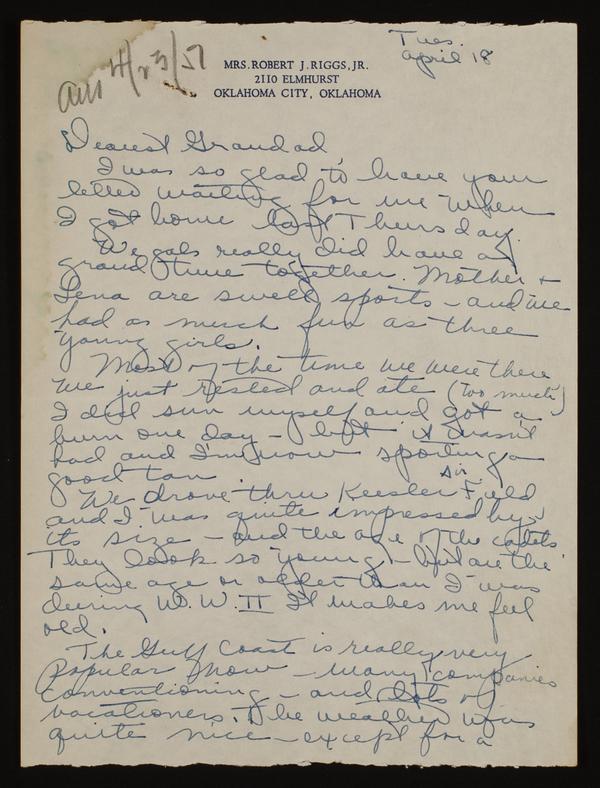 Tues.
April 18
Ans 4/23/57
MRS. ROBERT J. RIGGS, JR.
2110 ELMHURST
OKLAHOMA CITY, OKLAHOMA
Dearest Grandad,
I was so glad to have your
letter waiting for me when
I got home last Thursday.
We gals really did have a
grand time together. Mother +
Lena are swell sports - and we
had as much fun as three
young girls.
Most of the time we were there
we just rested and ate (too much)
I did sun myself and got a
burn one day - but it wasn't
bad and I'm now sporting a
good tan.
We drove thru Keesler Air Field
and I was quite impressed by
its size - and the age of the cadets
They look so young - but are the
same age or older than I was
during W.W. II It makes me feel
old.
The Gulf Coast is really very
popular now - many companies
conventioning - and lots of
vacationers. The weather was
quite nice - except for a